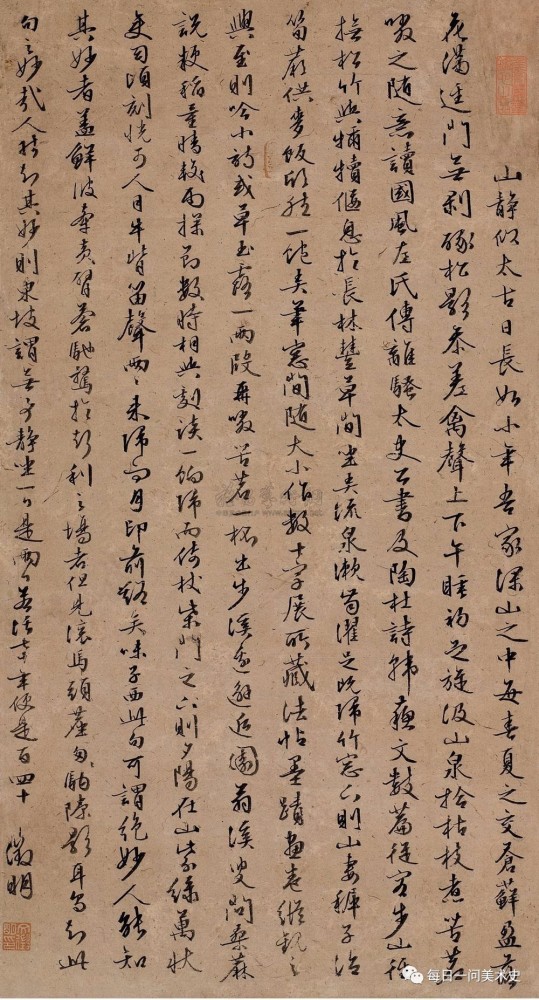 山靜似太古日長如小年吾家深山之中每春夏之交蒼蘚盈落
花滿逕門無剥啄松影參差禽聲上下午睡初足旋汲山泉拾枯枝煮苦茗
啜之隨意讀國風左氏傳離騷太史公書及陶杜詩韓蘇文數篇從容步山徑
撫松竹與犢偃息於長林豐草間坐弄流泉漱齒濯足既歸竹窓下則山妻稚子治
筍蕨供麥飯欣然一飽弄筆窓間隨大小作數十字展所藏法帖墨蹟畫卷縱觀之
興至則吟小詩或草玉露一兩段再啜苦茗一杯出步溪邊邂逅園翁溪叟問桑麻
說粳稻量晴較雨探節數時相與劇談一餉歸而倚杖柴門之下則夕陽在山紫綠萬狀
變幻頃刻恍可人目牛背笛聲兩〻來歸而月印前溪矣味子西此句可謂絕妙人能知
其妙者蓋鮮彼牽黃臂蒼馳獵於聲利之場者但見滾馬頭塵匆〻駒隙影耳烏知此
句之妙哉人能知其妙則東坡謂無事靜坐一日是兩日若活七十年便是百四十 徵明
每日一问美术史